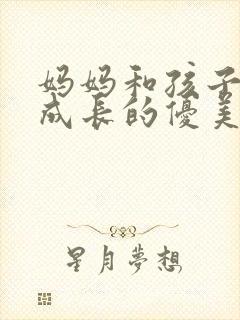 妈妈和孩子
成长的优美
星月夢想